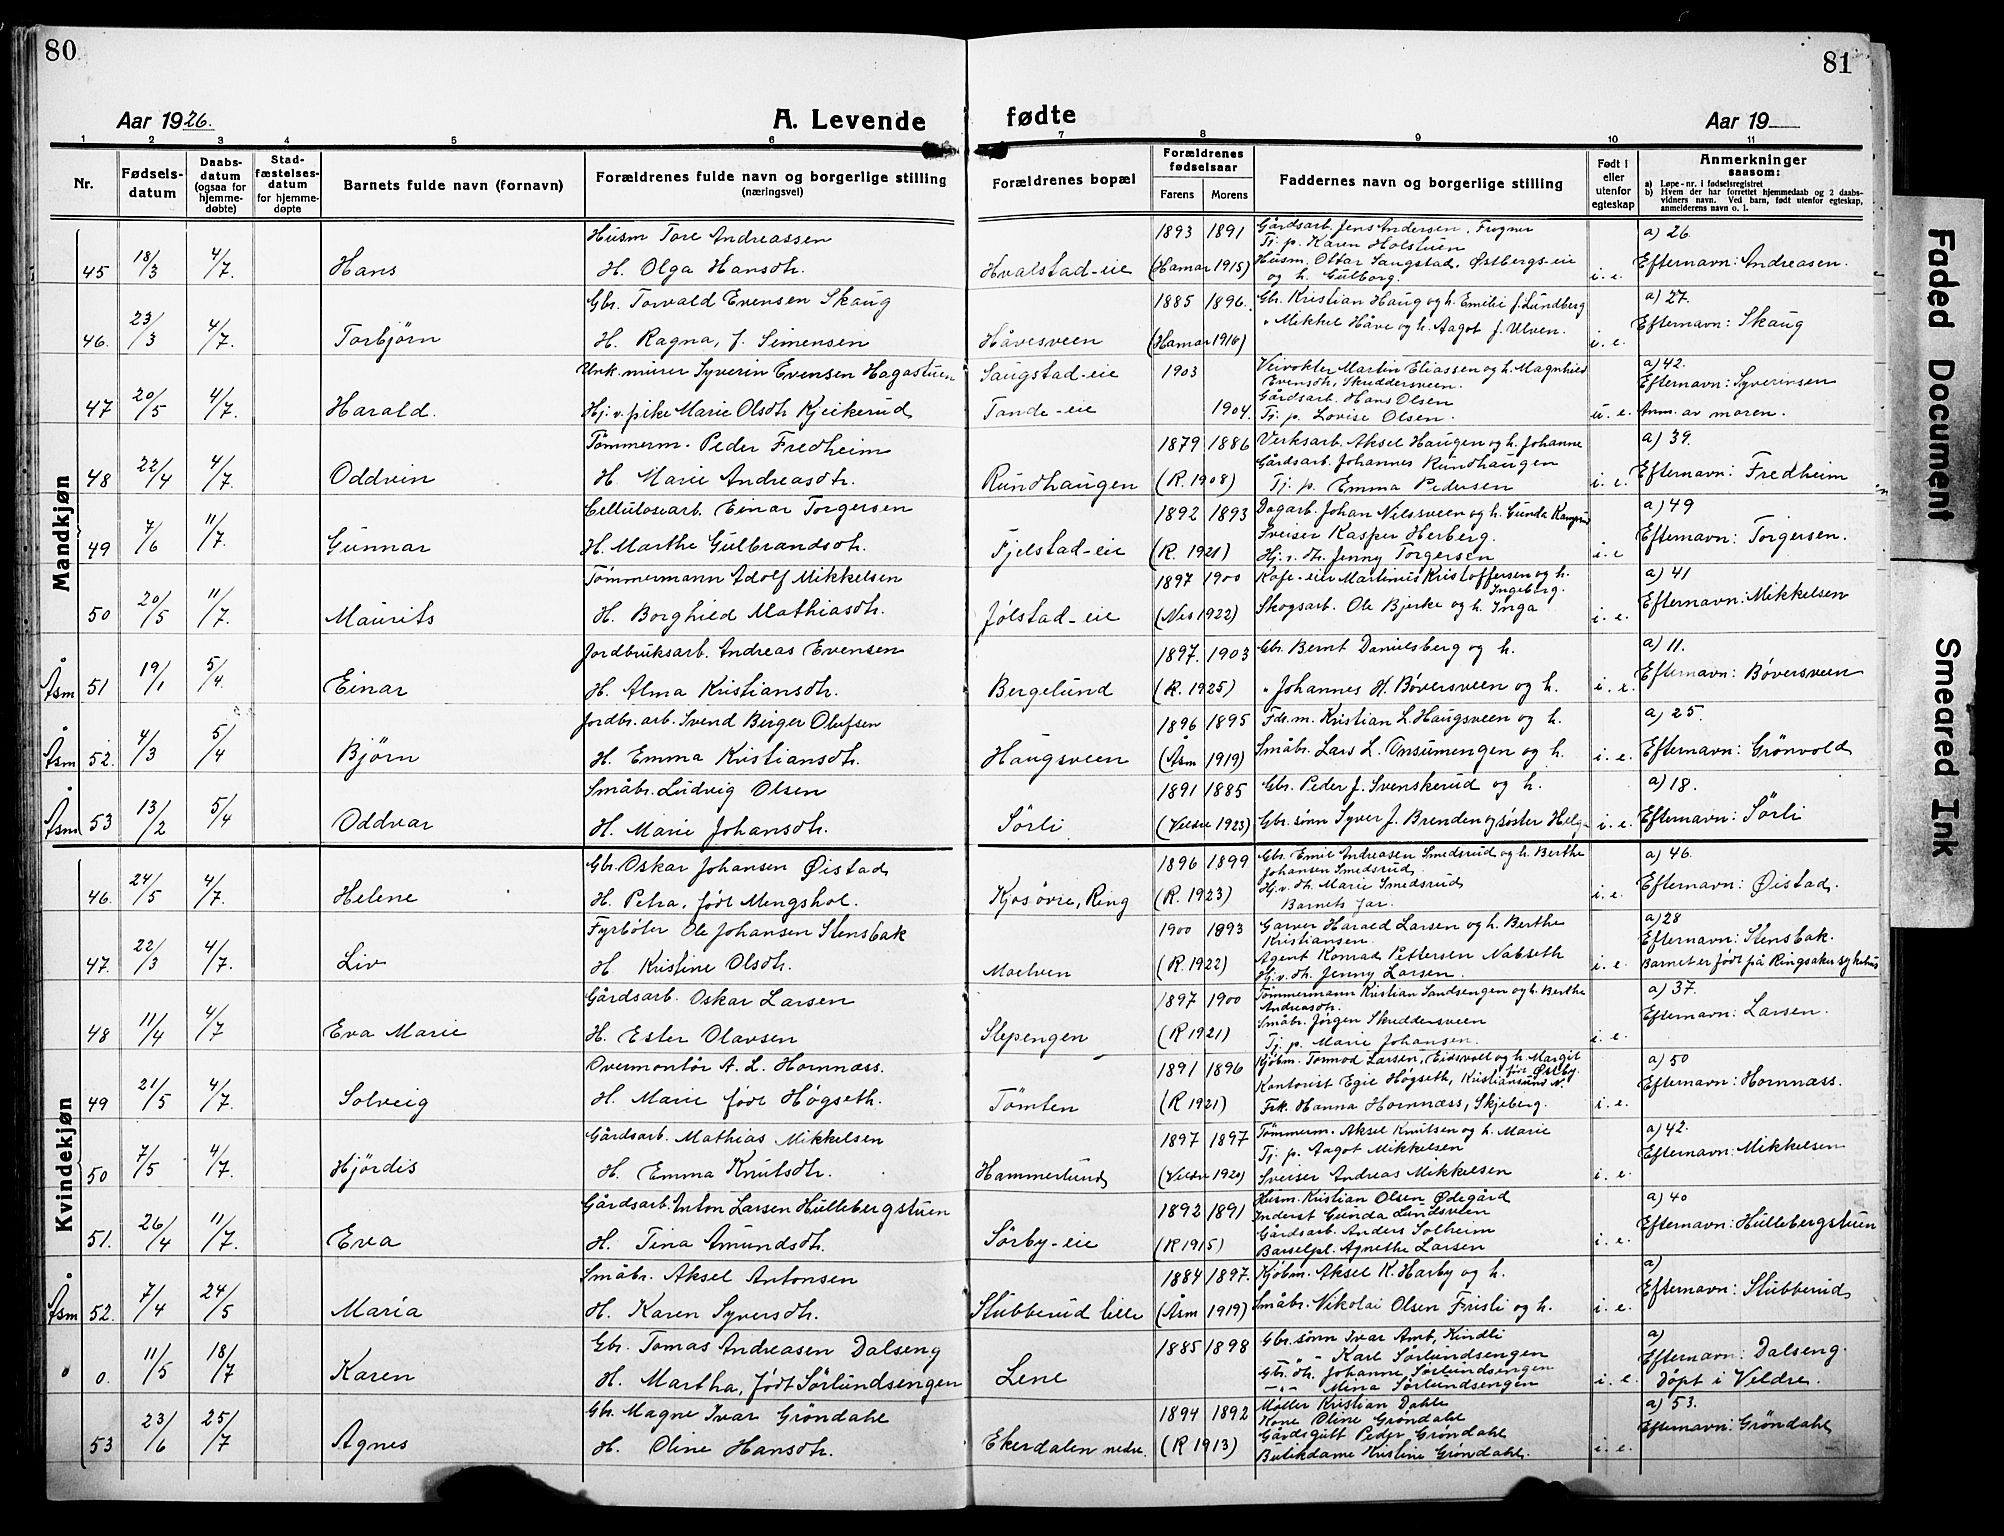 80
81
Aar 1926.
A. Levende
fødte
Aar 19
1 2 3 4 5 6 7 8 9 10 11
Nr.
Fødsels-
datum
Daabs-
datum
(ogsaa for
hjemme-
døbte)
Stad-
fæstelses-
datum
for hjemme-
døpte
Barnets fulde navn (fornavn)
Forældrenes fulde navn og borgerlige stilling
(næringsvei)
Forældrenes bopæl
Forældrenes
fødselsaar
Farens Morens
Faddernes navn og borgerlige stilling
Født i
eller
utenfor
egteskap
Anmerkninger
saasom:
a) Løpe-nr. i fødselsregistret
b) Hvem der har forrettet hjemmedaab og 2 daabs-
vidners navn. Ved barn, født utenfor egteskap,
anmelderens navn o. l.
Mandkjøn
Husm Tore Andreassen 1893 1891 Gårdsarb. Jens Andersen, Frogner a) 26
Tj. p. Karen Holstuen
45 18/3 4/7 Hans H. Olga Hansdtr. Hvalstad-eie (Hamar 1915) Husm. Ottar Saugstad, Østbergs-eie i. e. Efternavn: Andreasen.
og h. Gulborg.
Gbr. Torvald Evensen Skaug 1885 1896. Gbr. Kristian Haug og h. Emilie f. Lundberg a) 27.
46. 23/3 4/7. Torbjørn H. Ragna, f. Simensen Håvesveen (Hamar 1916) " Mikkel Håve og h. Aagot f. Ulven. i. e. Efternavn: Skaug
Unk. murer Syverin Evensen Hagastuen Saugstad-eie 1903 Veivokter Martin Eliassen og h. Magnhild a) 42.
Evensdtr, Skruddersveen. Efternavn: Syverinsen
47 20/5 4/7 Harald. Hj. v. pike Marie Olsdtr Kjeikerud Tande-eie 1904. Gårdsarb. Hans Olsen u. e. Anm. av moren.
Tj. p. Lovise Olsen.
Tømmerm. Peder Fredheim 1879 1886 Verksarb. Aksel Haugen og h. Johanne a) 39.
48 22/4 4/7. Oddvin H. Marie Andreasdtr. Rundhaugen (R. 1908) Gårdsarb. Johannes Rundhaugen i. e. Efternavn: Fredheim
Tj. p. Emma Pedersen
Cellulosearb. Einar Torgersen 1892 1893 Dagarb. Johan Nilssveen og h. Gunda a) 49
49 7/6 11/7. Gunnar H. Marthe Gulbrandsdtr. Fjelstad-eie (R. 1921) Sveiser Kasper Herberg. i. e Efternavn: Torgersen.
Hj. v. dtr. Jenny Torgersen
Tømmermann Adolf Mikkelsen 1897 1900 Kafe-eier Martinus Kristoffersen og h. a) 41
Ingeborg.
50 20/5 11/7. Maurits H. Borghild Mathiasdtr. Jølstad-eie (Nes 1922) Skogsarb. Ole Bjerke og h. Inga i. e. Efternavn: Mikkelsen
Jordbruksarb. Andreas Evensen 1897. 1903 Gbr. Bernt Danielsberg og h. a) 11.
Åsm 51 19/1 5/4. Einar H. Alma Kristiansdtr. Bergelund (R. 1925) " Johannes H. Bøversveen og h. i. e. Efternavn: Bøversveen
Jordbr. arb. Svend Birger Olufsen 1896 1895 Fdr.m. Kristian L. Haugsveen og h. a) 25.
Åsm 52. 4/3 5/4 Bjørn H. Emma Kristiansdtr. Haugsveen (Åsm 1919) Småbr. Lars L. Onsumengen og h. i. e. Efternavn: Grönvold
Småbr. Ludvig Olsen 1891 1885 Gbr. Peder J. Svenskerud og h. a) 18.
Åsm 53 13/2 5/4 Oddvar H. Marie Johansdtr. Sörli (Veldre 1923) Gbr. sønn Syver J. Brenden og søster Helga i. e. Efternavn: Sörli
Kvindekjøn
Gbr. Oskar Johansen Øistad 1896 1899 Gbr. Emil Andreasen Smedsrud og h. Berthe a) 46.
Johansen Smedsrud
46. 24/5 4/7. Helene H. Petra, født Mengshol. Kjos övre, Ring (R. 1923) Hj. v. dtr. Marie Smedsrud i. e. Efternavn: Øistad.
Barnets far.
Fyrböter Ole Johansen Stensbak 1900 1893 Garver Harald Larsen og h. Berthe a) 28
Kristiansen. Efternavn: Stensbak.
47. 22/3 4/7. Liv H. Kristine Olsdtr. Moelven (R. 1922) Agent Konrad Pettersen Nabseth i. e. Barnet er født på Ringsaker sykehus
Hj. v. dtr. Jenny Larsen.
Gårdsarb. Oskar Larsen 1897 1900 Tømmermann Kristian Sandsengen og h. Berthe a) 37.
Andreasdtr.
48 11/4 4/7 Eva Marie H. Ester Olavsen Slepengen (R 1921) Småbr. Jörgen Skruddersveen i. e. Efternavn: Larsen.
Tj. p. Marie Johansen.
Overmontör A. L. Hornnæss. 1891 1896 Kjöbm. Tormod Larsen, Eidsvoll og h. Margit a) 50
født Østby.
49 21/5 4/7 Solveig H. Marie født Högseth. Tömten (R 1921) Kontorist Egil Högseth, Kristiansund N. i. e. Efternavn: Hornnæss.
Frk. Hanna Hornnæss, Skjeberg.
Gårdsarb. Mathias Mikkelsen 1897 1897 Tømmerm. Aksel Knutsen og h. Marie a) 42.
50 7/5 4/7 Hjördis H. Emma Knutsdtr. Hammerlund (Veldre 1920) Tj. p. Aagot Mikkelsen i. e. Efternavn: Mikkelsen
Sveiser Andreas Mikkelsen
Gårdsarb. Anton Larsen Hullebergstuen 1892 1891 Husm. Kristian Olsen Ødegård a) 40
Inderst Gunda Lundsveen
51. 26/4 11/7. Eva H. Tina Amundsdtr. Sørby-eie (R 1915) Gårdsarb. Anders Solheim i. e. Efternavn: Hullebergstuen
Barselpl. Agnethe Larsen
Småbr. Aksel Antonsen 1884 1897. Kjøbm. Aksel K. Harby og h. a)
Åsm 52. 7/4 24/5 Maria H. Karen Syversdtr. Stubberud lille (Åsm 1919) Småbr. Nikolai Olsen Frisli og h. i. e. Efternavn: Stubberud
Gbr. Tomas Andreasen Dalseng 1885 1898 Gbr. sønn Ivar Amb. Kindli a)
" 0. 11/5 18/7 Karen H. Martha, født Sörlundsengen Lene -"- Karl Sörlundsengen Efternavn: Dalseng.
Gbr. dtr. Johanne Sörlundsengen i. e. Döpt i Veldre.
-"- Mina Sörlundsengen
Gbr. Magne Ivar Gröndahl 1894 1892 Møller Kristian Dahle a) 53.
Kone Oline Gröndahl
53 23/6 25/7 Agnes H. Oline Hansdtr. Ekerdalen nedre. (R 1913) Gårdsgutt Peder Gröndahl i. e. Efternavn: Gröndahl
Butikdame Kristine Gröndahl.
Faded Document
Smeared Ink